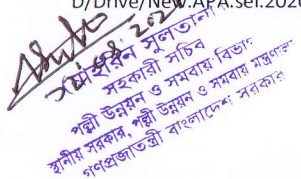 D/Drive/New.APA.sel.2020
সুলতানা
সহকারী সচিব
পল্লী উন্নয়ন ও সমবায় বিভাগ
স্থানীয় সরকার, পল্লী উন্নয়ন ও সমবায় মন্ত্রণালয়
গণপ্রজাতন্ত্রী বাংলাদেশ সরকার